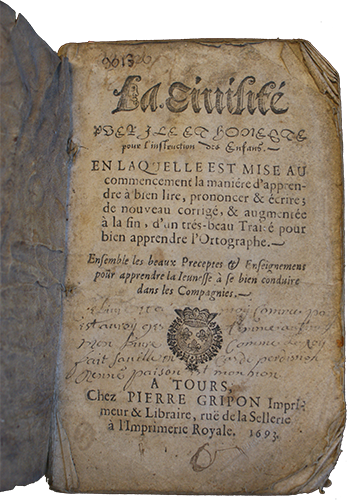 La Civilité
PUERILE ET HONESTE
pour l'instruction des Enfans.
EN LAQUELLE EST MISE AU
commencement la maniére d'appren-
dre à bien lire, prononcer & écrire;
de nouveau corrigé, & augmentée
à la fin, d'un trés-beau Traité pour
bien apprendre l'Ortographe.
Ensemble les beaux Preceptes & Enseignemens
pour apprendre la Ieunesse à se bien conduire
dans les Compagnies.
A TOURS,
Chez PIERRE GRIPON Impri-
meur & Libraire, ruë de la Sellerie
à l'Imprimerie Royale. 1693.